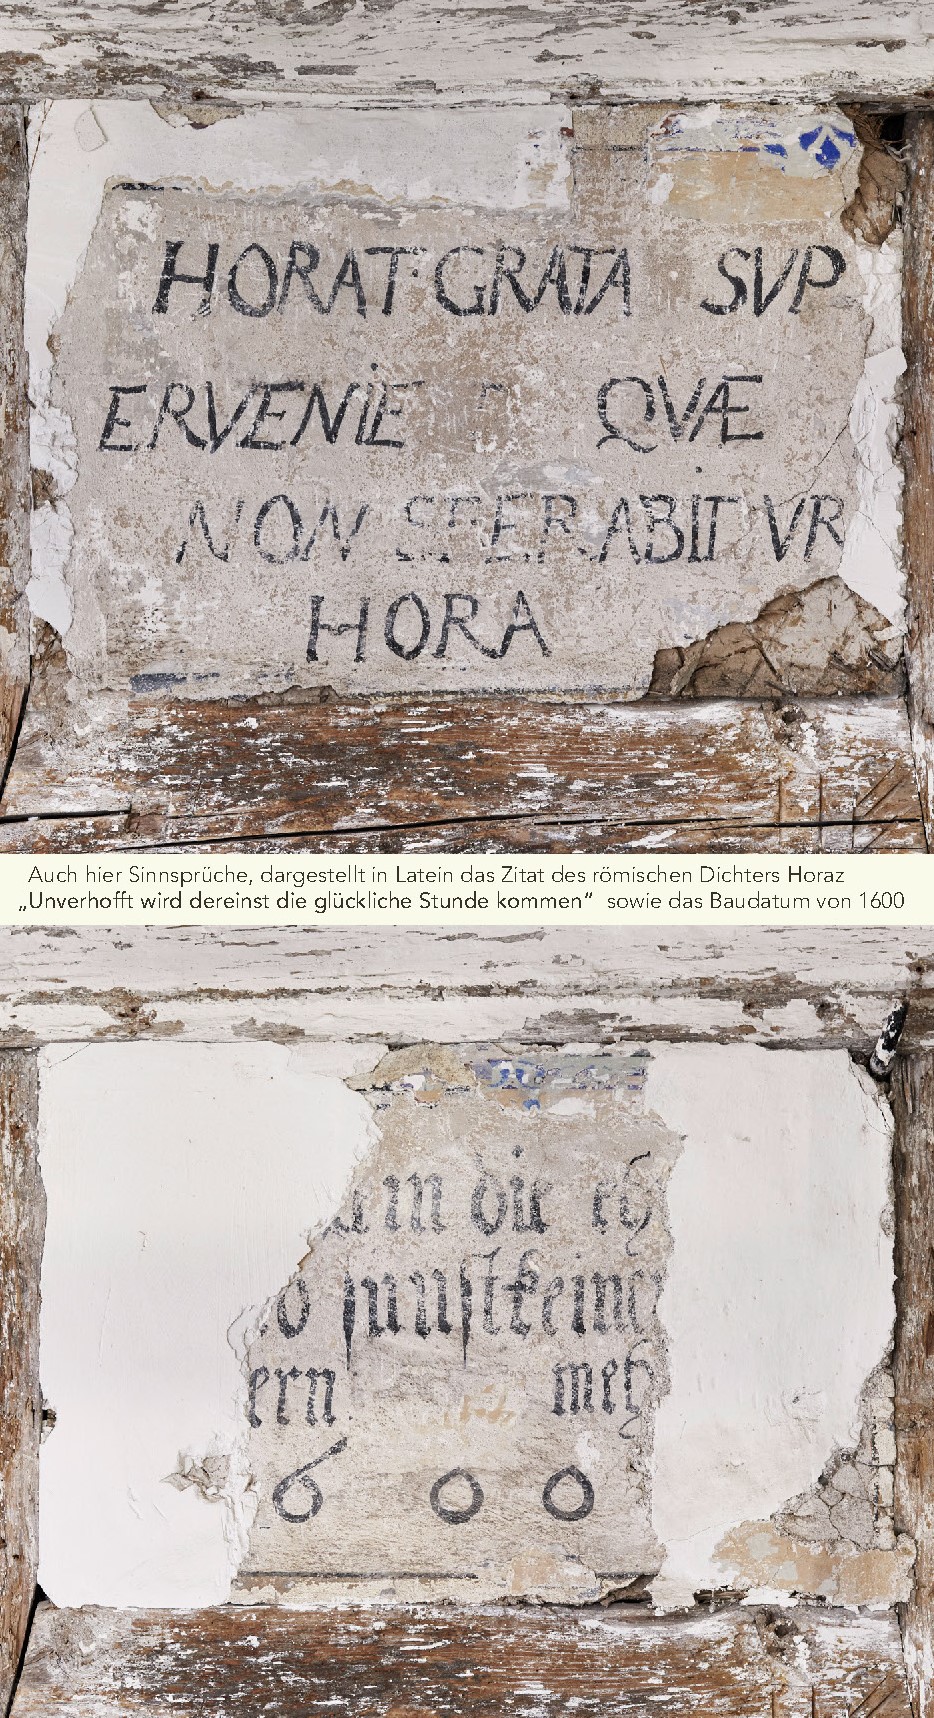 HORAT GRATA SVP
ERVENIE QVÆ
NON SPERABITVR
HORA
Auch hier Sinnsprüche, dargestellt in Latein das Zitat des römischen Dichters Horaz
„Unverhofft wird dereinst die glückliche Stunde kommen“ sowie das Baudatum von 1600
in die eh
sunst keine
ern meh
600